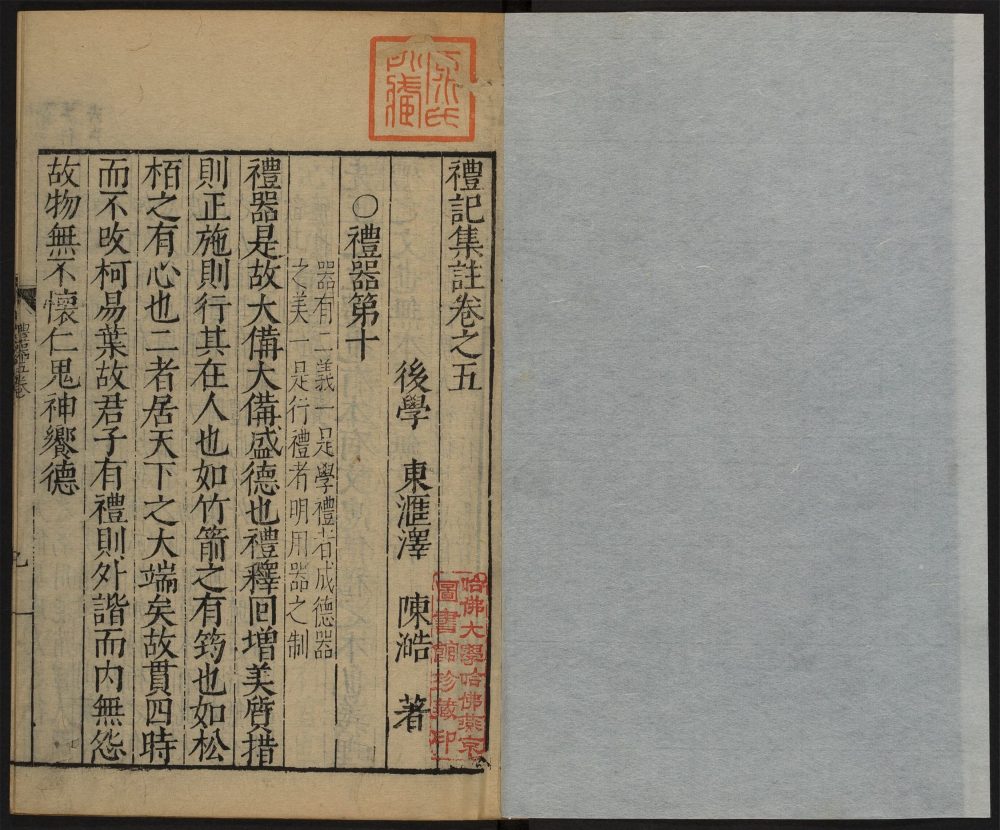 禮記集註卷之五
後學 東滙澤 陳澔 著
○禮器第十
器有二義一是學禮者成德器
之美一是行禮者明用器之制
禮器是故大備大備盛德也禮釋回增美質措
則正施則行其在人也如竹箭之有筠也如松
栢之有心也二者居天下之大端矣故貫四時
而不攺柯易葉故君子有禮則外諧而内無怨
故物無不懷仁鬼神饗德
哈佛大學哈佛燕京
圖書館珍藏印